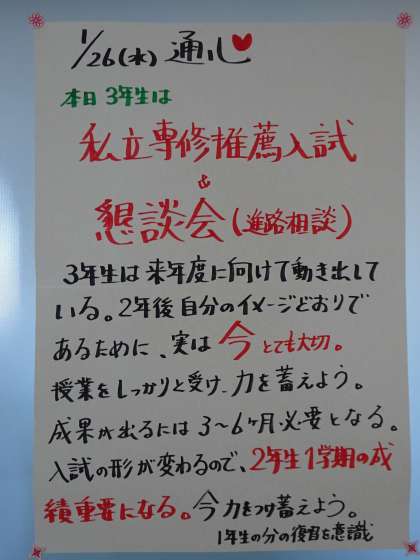 1/26(水) 通心
本日 3年生は
私立専修推薦入試
&
懇談会(進路相談)
3年生は来年度に向けて動き出して
いる。2年後自分のイメージどおりで
あるために、実は今とても大切。
授業をしっかりと受け、力を蓄えよう。
成果が出るには3～6ヶ月必要となる。
入試の形が変わるので、2年生1学期の成
績重要になる。今力をつけ蓄えよう。
1年生の分の復習を意識